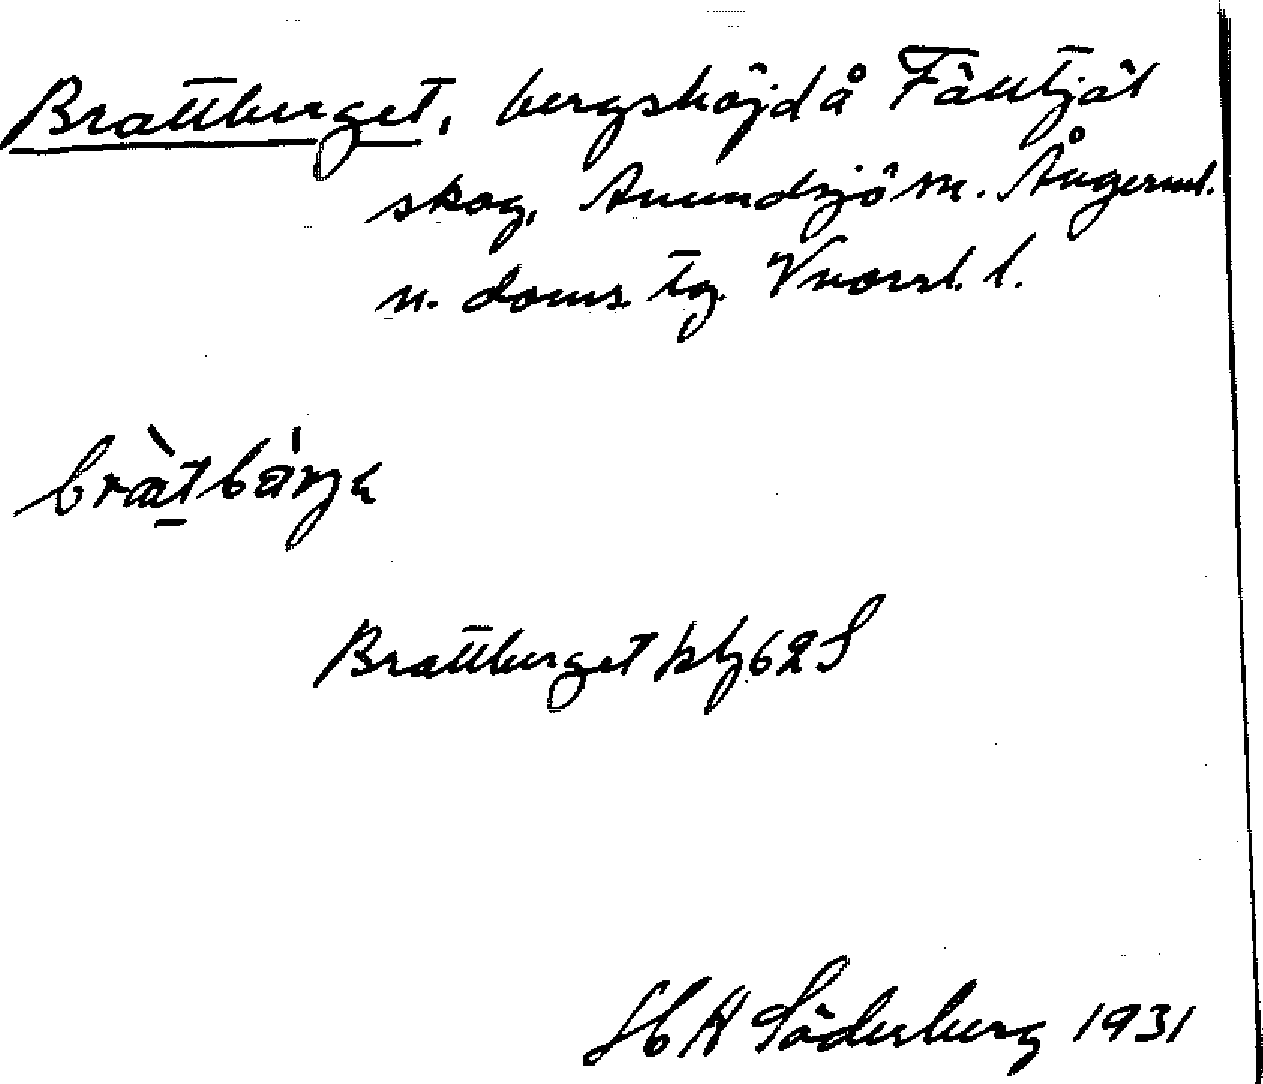 Brattberget, bergshöjd å Fälltjäl
skog, Anundsjö sn. Ångerml.
n. doms. tg. Vnorrl. l.
bràtbárje
Brattberget kbl 62 S
H H Söderberg 1931